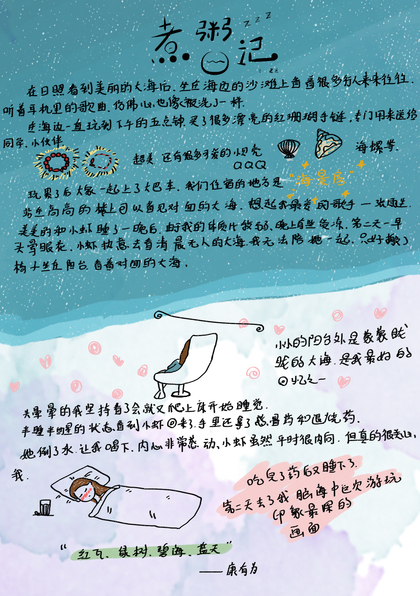 煮粥日记
zzz
在日照看到美丽的大海后,坐在海边的沙滩上看着很多的人来来往往,
听着耳机里的歌曲,仿佛心也像被洗了一样.
在海边一直玩到下午的五点钟,买了很多漂亮的红珊瑚手链,专门用来送给
同学,小伙伴
超美 还有很多可爱的小贝壳
QQQ
海螺等.
玩累了后大家一起上了大巴车,我们住宿的地方是 "海景房"
站在高高的楼上可以看见对面的大海,想起我最喜的歌手
美美的和小虾睡了一晚后,由于我的体质比较弱,晚上有些着凉,第二天一早
头晕眼花,小虾快意去看清晨无人的大海,我无法陪她一起,只好搬了
椅子坐在阳台 看着对面的大海.
小小的阳台外是蒙蒙胧
胧的大海.是我最好的
回忆之一
头晕晕的我坚持看了会就又爬上床开始睡觉.
半睡半醒的状态直到小虾回来了,手里还拿了感冒药和退烧药.
她倒了水 让我喝下,内心非常感动,小虾虽然平时很内向,但真的很关心
我.
吃完了药后又睡下了.
第二天去了我脑海中这次游玩
印象最深的
画面
"红瓦、绿树、碧海、蓝天"
——康有为